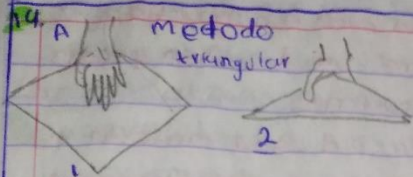 A metodo
triangular
1 2